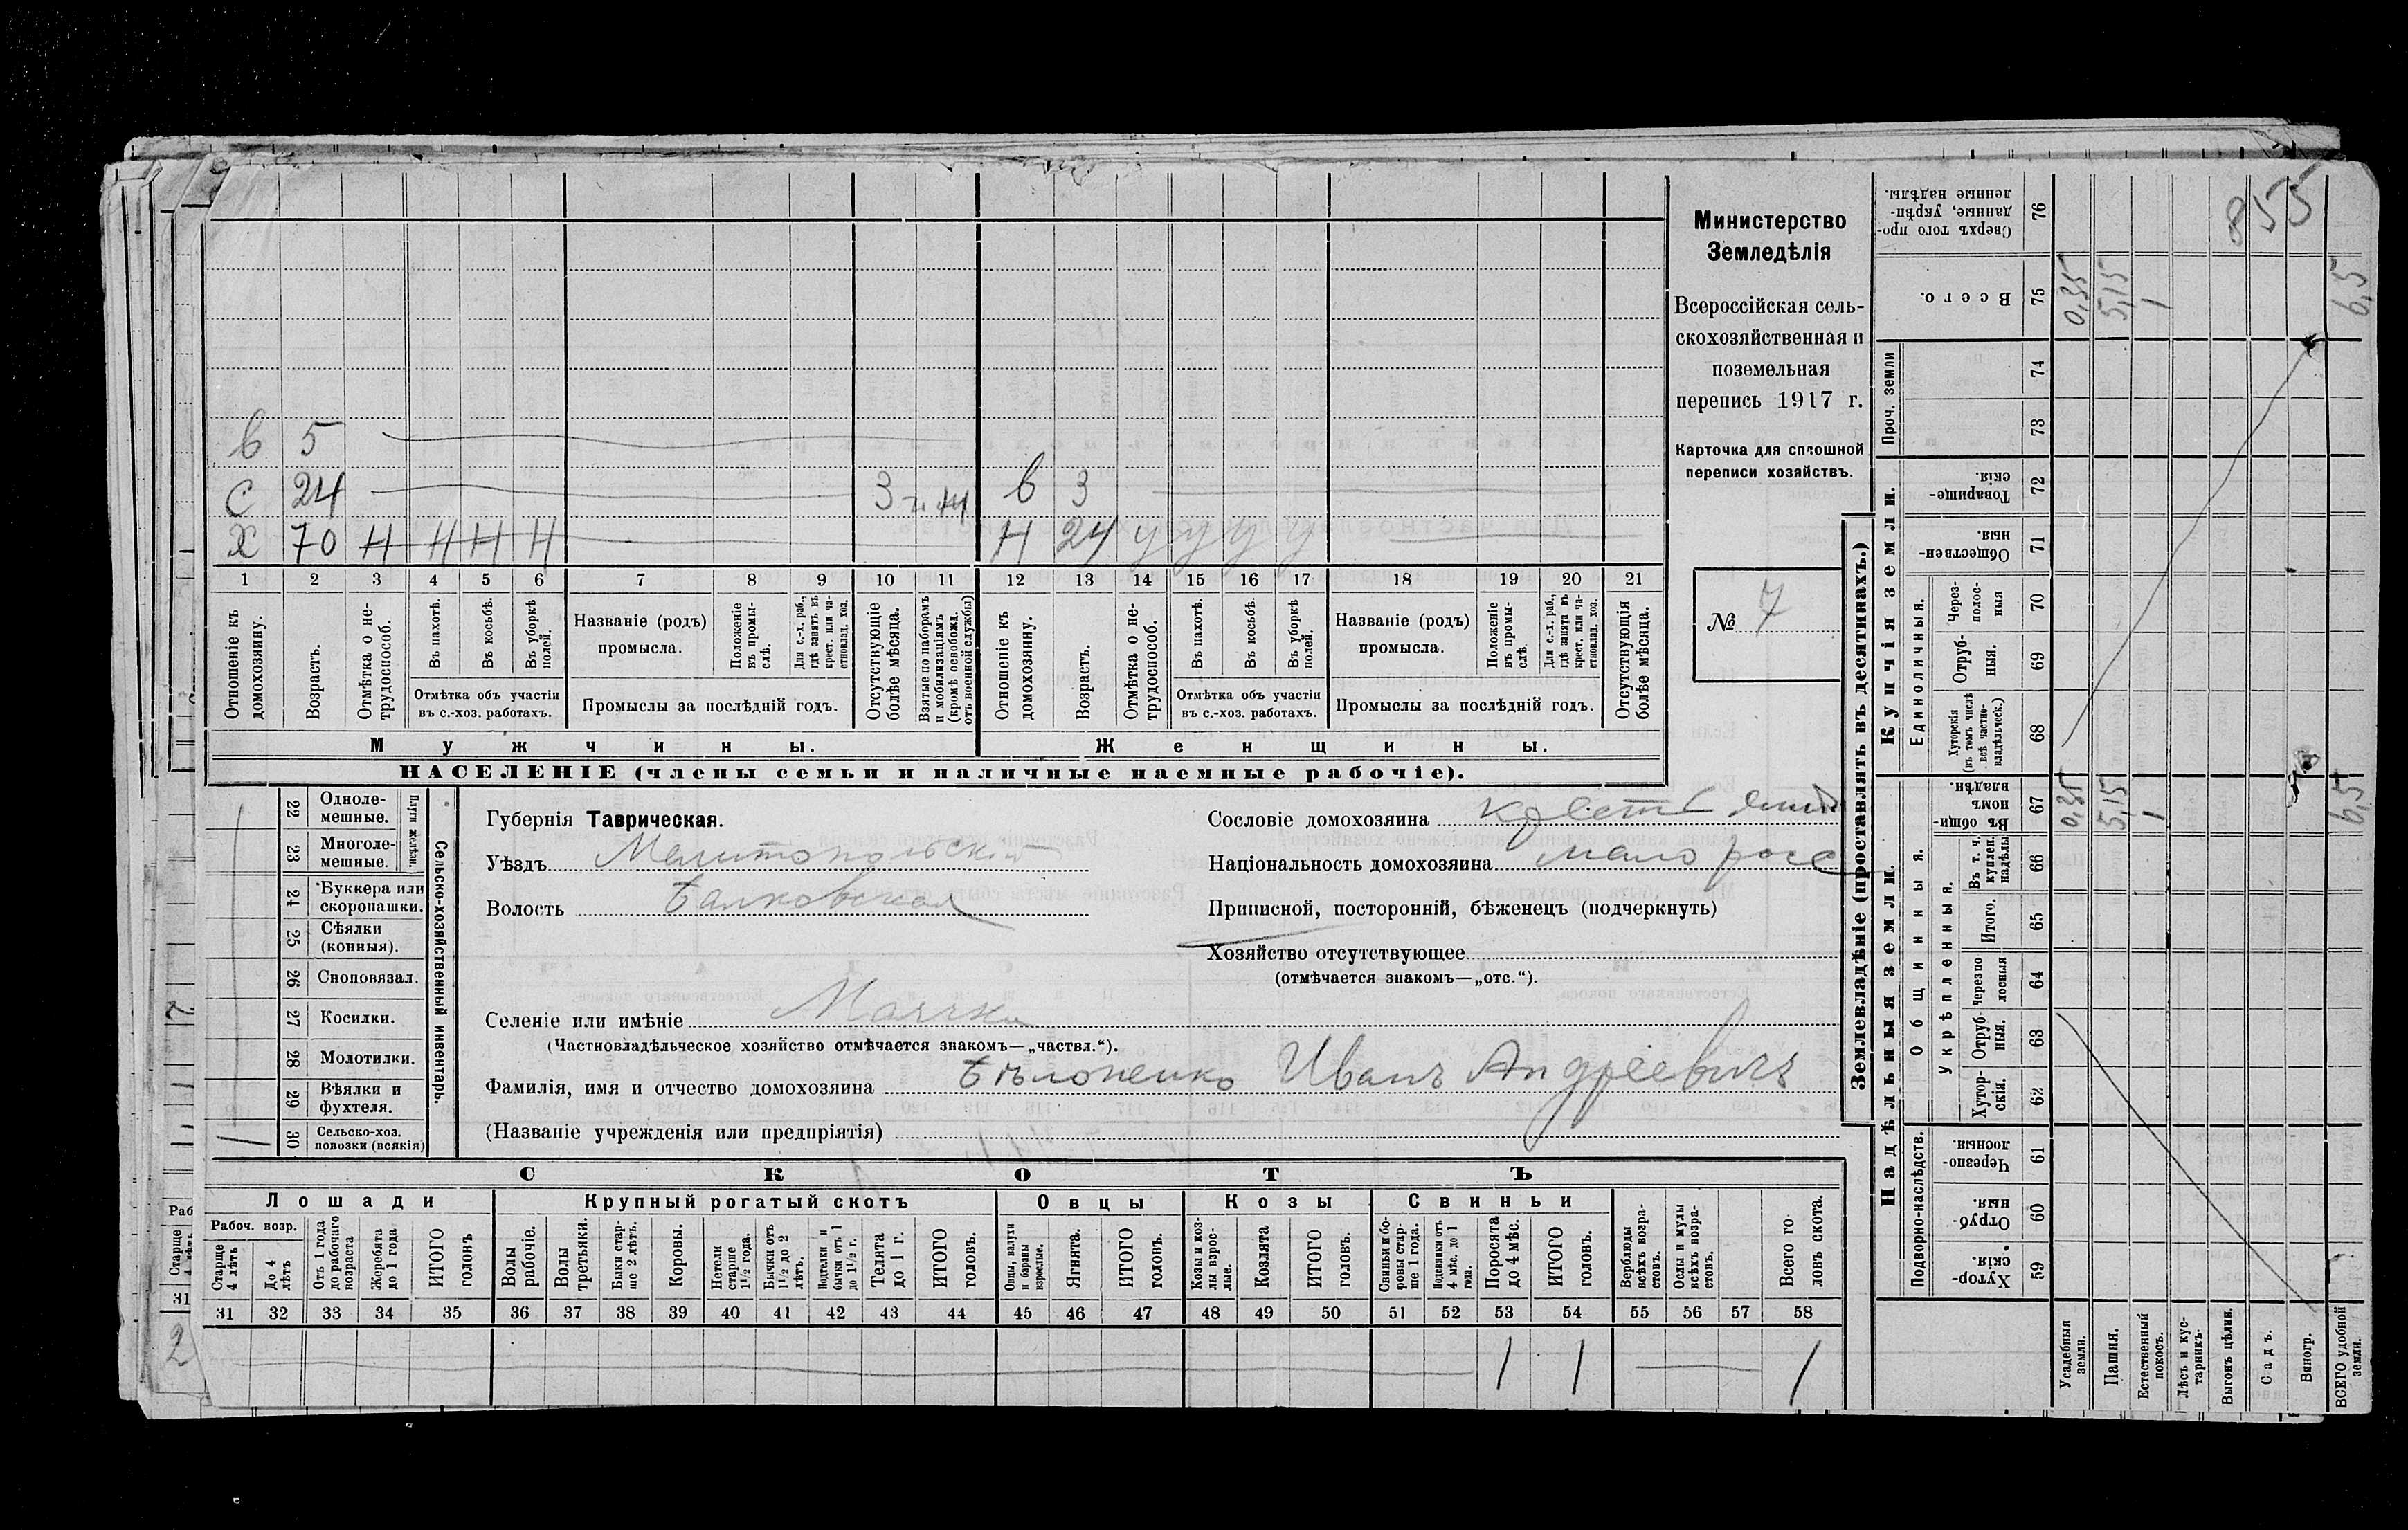 в 5
С 24 3 г. в 3
Х 70 Н Н Н Н Н 24 у у у у
1 2 3 4 5 6 7 8 9 10 11 12 13 14 15 16 17 18 19 20 21
Отношеніе къ домохозяину.
Возрастъ.
Отмѣтка о не-трудоспособ.
Въ пахотѣ.
Въ косьбѣ.
Въ уборкѣ полей.
Отмѣтка объ участіи
въ с.-хоз. работахъ.
Названіе (родъ)
промысла.
Положеніе въ промы-слѣ.
Для с.-х. раб., гдѣ занятъ въ крест. или ча-стновлад. хоз.
Промыслы за послѣдній годъ.
Отсутствующіе болѣе мѣсяца.
Взятые по наборамъ и мобилизаціямъ (кромѣ освобожд. отъ военной службы)
Отношеніе къ домохозяину.
Возрастъ.
Отмѣтка о не-трудоспособ.
Въ пахотѣ.
Въ косьбѣ.
Въ уборкѣ полей.
Отмѣтка объ участіи
въ с.-хоз. работахъ.
Названіе (родъ)
промысла.
Положеніе въ промы-слѣ.
Для с.-х. раб., гдѣ занята въ крест. или ча-стновлад. хоз.
Промыслы за послѣдній годъ.
Отсутствующія болѣе мѣсяца.
Мужчины.
Женщины.
НАСЕЛЕНІЕ (члены семьи и наличные наемные рабочіе).
Министерство
Земледѣлія
Всероссійская сель-
скохозяйственная и
поземельная
перепись 1917 г.
Карточка для сплошной
переписи хозяйствъ.
№ 7
22 Одноле-
мешные.
23 Многоле-
мешные.
Плуги желѣзн.
24 Буккера или
скоропашки.
25 Сѣялки
(конныя).
26 Сноповязал.
27 Косилки.
28 Молотилки.
29 Вѣялки и
фухтеля.
30 Сельско-хоз.
повозки (всякія)
Сельско-хозяйственный инвентарь.
Губернія Таврическая.
Уѣздъ Мелитопольскій
Волость Балковская
Сословіе домохозяина
Національность домохозяина малоросс
Приписной, посторонній, бѣженецъ (подчеркнуть)
Хозяйство отсутствующее
(отмѣчается знакомъ—„отс.“).
Селеніе или имѣніе Маячка
(Частновладѣльческое хозяйство отмѣчается знакомъ—„частвл.“).
Фамилія, имя и отчество домохозяина Бѣлоненко Иванъ Андреевичъ
(Названіе учрежденія или предпріятія)
СКОТЪ
Лошади
Крупный рогатый скотъ
Овцы
Козы
Свиньи
Рабоч. возр.
Старше 4 лѣтъ
До 4 лѣтъ
Отъ 1 года до рабочаго возраста
Жеребята до 1 года
ИТОГО головъ
Волы рабочіе.
Волы третьяки.
Быки стар-ше 2 лѣтъ.
Коровы.
Нетели старше 1½ года.
Бычки отъ 1½ до 2 лѣтъ.
Подтелки и бычки отъ 1 до 1½ г.
Телята до 1 г.
ИТОГО головъ.
Овцы, валухи и бараны взрослые.
Ягнята.
ИТОГО головъ.
Козы и коз-лы взрос-лые.
Козлята
ИТОГО головъ.
Свиньи и бо-ровы стар-ше 1 года.
Подсвинки отъ 4 мѣс. до 1 года.
Поросята до 4 мѣс.
ИТОГО головъ.
Верблюды всѣхъ возра-стовъ.
Ослы и мулы всѣхъ возра-стовъ.
Всего го ловъ скота.
31 32 33 34 35 36 37 38 39 40 41 42 43 44 45 46 47 48 49 50 51 52 53 54 55 56 57 58
1 1 1
Землевладѣніе (проставлять въ десятинахъ.)
Купчія земли.
Надѣльныя земли.
Сверхъ того про-данные, укрѣп-ленные надѣлы. 76
855
Всего. 75 0,35 5,15 1 6,5
Проч. земли 74 73
Товарище-скія 72
Обществен-ныя. 71
Единоличныя.
Через-полос-ныя 70
Отруб-ныя. 69
Хуторскія (въ томъ числѣ всѣ частно-владѣльческ.) 68
Въ общин-номъ владѣн. 67 0,35 5,15 1 6,5
Общинныя.
Укрѣпленныя.
Въ т. ч. куплен. надѣлы 66
Итого. 65
Черезпо лосныя 64
Отруб ныя. 63
Хутор-скія. 62
Подворно-наслѣдств.
Черезпо-лосныя. 61
Отруб-ныя. 60
Хутор-скія. 59
Усадебныя земли.
Пашня.
Естественный покосъ.
Лѣсъ и кус-тарникъ.
Выгонъ цѣлин.
Садъ.
Виногр.
ВСЕГО удобной земли.
Раб
Старше
31
2